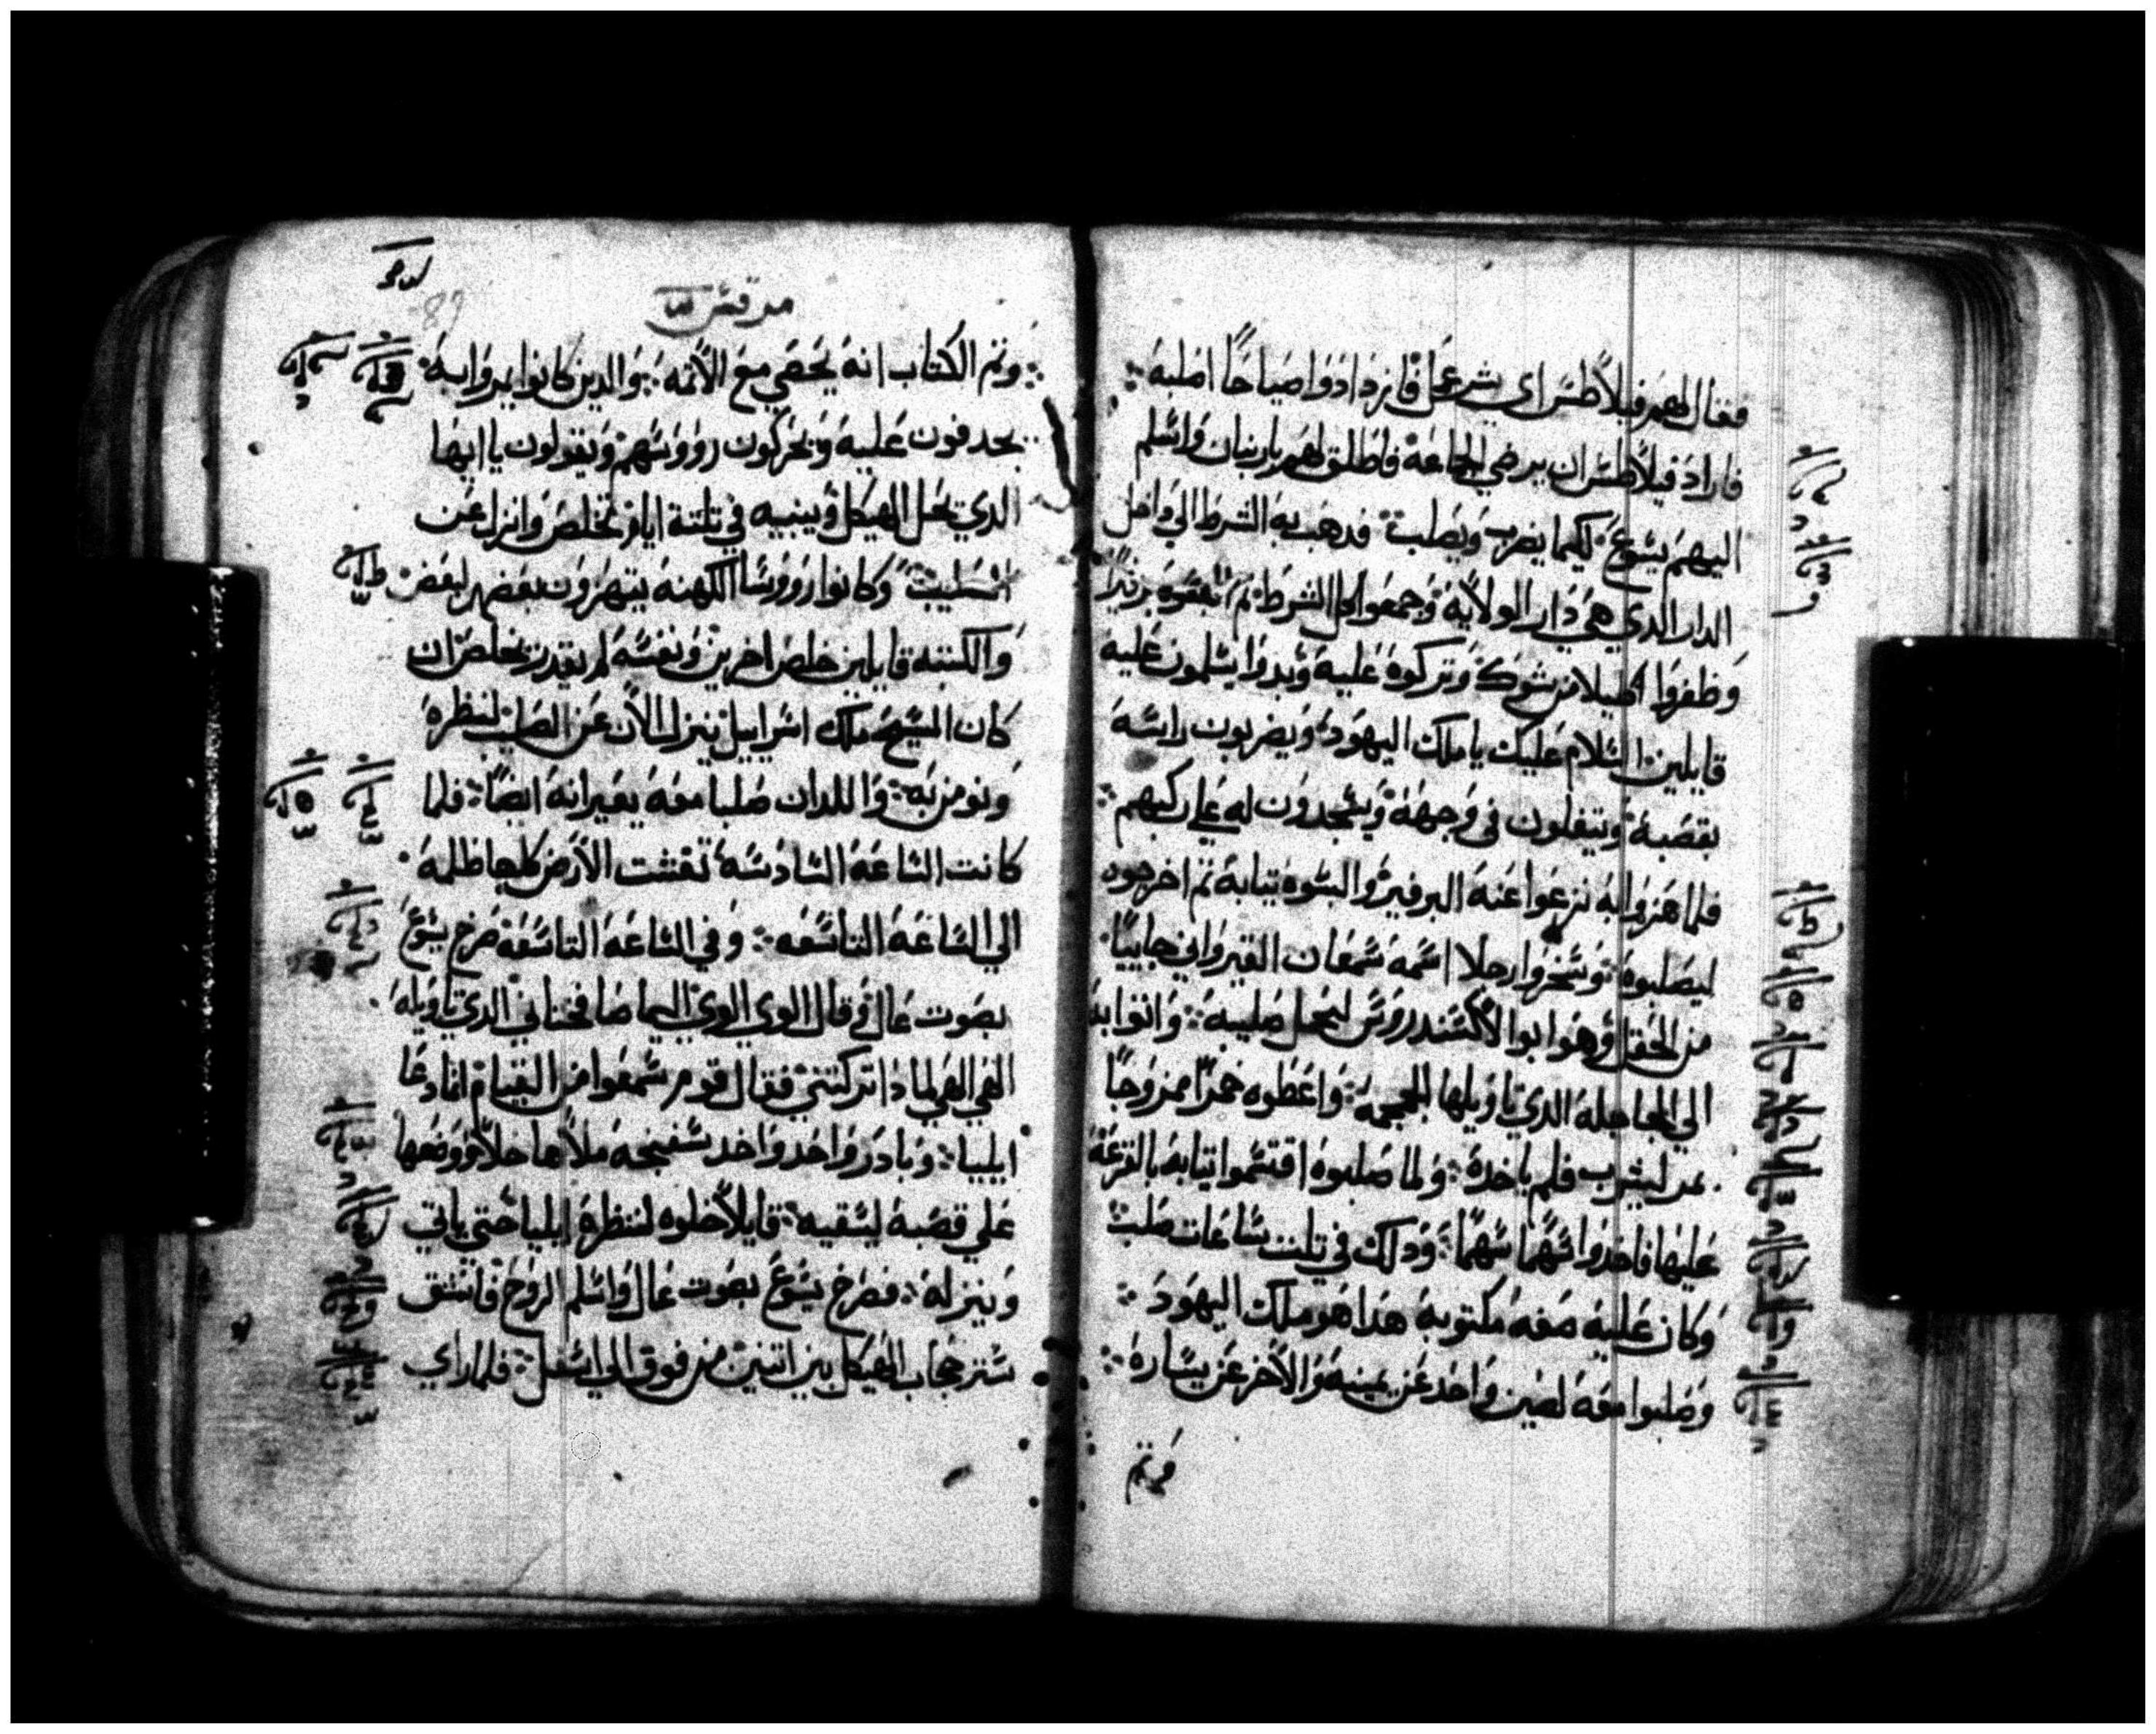 فقال لهم فيلاطس اي شر عمل فازدادوا صياحا اصلبه
فاراد فيلاطس ان يرضي الجماعة فاطلق لهم بارنبان واسلم
اليهم يسوع لكيما يضرب ويصلب فدهب به الشرط الي داخل
الدار الدي هي دار الولاية وجمعوا كل الشرط
وظفروا اكليلا من شوك وتركوه عليه وبدوا يسلمون عليه
قايلين السلام عليك يا ملك اليهود ويضربون راسه
بقصبة ويتفلون في وجهه ويسجدون له علي ركبهم
فلما هزوا به نزعوا عنه البرفير والبسوه تيابه تم اخرجوه
ليصلبوه وسخروا رجلا اسمه سمعان القيرواني جاييا
من الحقل وهوا بوا الاكسندروس ليحمل صليبه واتوا به
الي الجاجلة الدي تاويلها الجمجمة واعطوه خمرا ممزوجا
بمر ليشرب فلم ياخده ولما صلبوه اقتسموا تيابه بالقرعة
عليها فاخدوا سهما سهما ودلك في تلت ساعات صلب
وكان علية صفه مكتوبه هدا هو ملك اليهود
وصلبوا معه لصين واحد عن يمينه والاخر عن يساره
وتم
مرقس
89
وتم الكتاب انه يحصي مع الاتمه والدين كانوا يمروا به
يجدفون عليه ويحركون رووسهم ويقولون يا ايها
الدي يحل الهيكل ويبنيه في تلتة ايام تخلص وانزل عن
الصليب وكانوا رووسا الكهنه يتهزون بعضهم لبعض
والكتبه قايلين خلص اخرين ونفسه لم يقدر يخلص ان
كان المسيح ملك اسراييل ينزل الان عن الصليب لننظره
ونومن به واللدان صلبا معه يعيرانه ايضا فلما
كانت الساعة السادسة تغشت الارض كلها ظلمه
الي الساعة التاسعه وفي الساعة التاسعة صرخ يسوع
بصوت عال وقال الوي الوي اليما صافختاني الدي تاويله
الهي الهي لمادا تركتني فقال قوم سمعوا من القيام انما دعا
ايليا وبادر واحد واخد سفنجه ملاها خلا ووضعها
علي قصبة ليسقيه قايلا خلوه لننظر ايليا حتي ياتي
وينزله فصرخ يسوع بصوت عال واسلم الروح فانشق
ستر حجاب الهيكل بين اتنين من فوق الي اسفل فلما راي